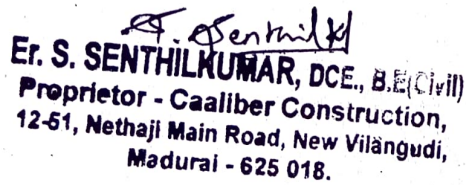 Er. S. SENTHILKUMAR, DCE., B.E(Civil)
Proprietor - Caaliber Construction,
12-51, Nethaji Main Road, New Vilangudi,
Madurai - 625 018.